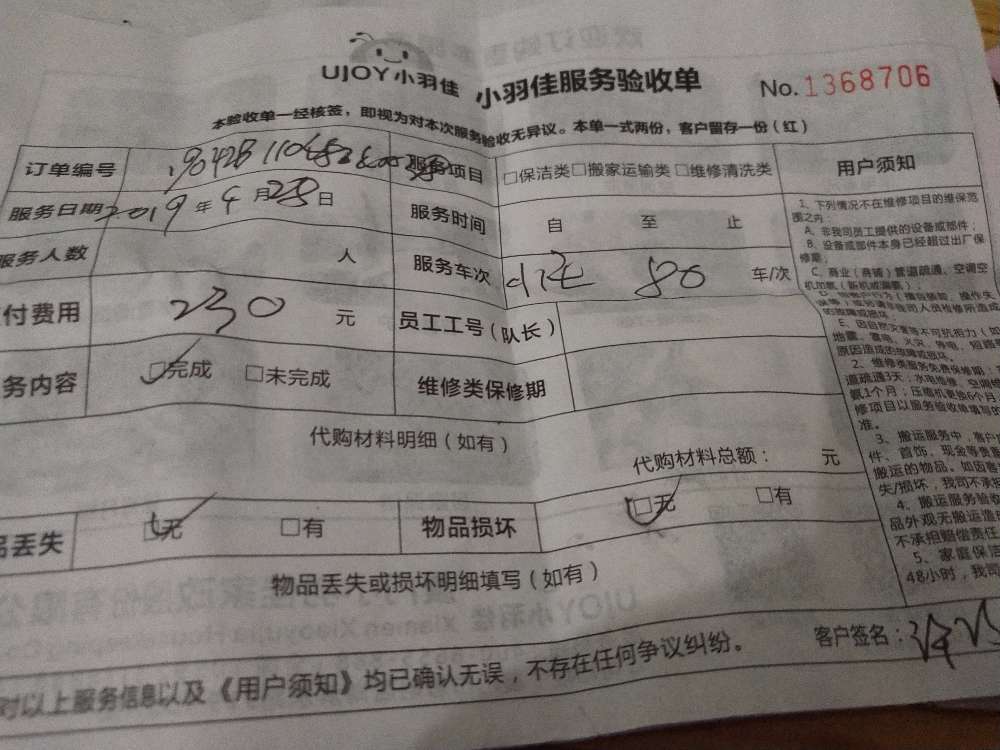 UJOY小羽佳 小羽佳服务验收单 No.1368706
本验收单一经核签，即视为对本次服务验收无异议。本单一式两份，客户留存一份（红）
订单编号 服务项目 □保洁类□搬家运输类□维修清洗类 用户须知
服务日期 2019年4月28日 服务时间 自 至 止
服务人数 人 服务车次 80 车/次
付费用 230 元 员工工号（队长）
务内容 □完成 □未完成 维修类保修期
代购材料明细（如有）
代购材料总额： 元
品丢失 □无 □有 物品损坏 □无 □有
物品丢失或损坏明细填写（如有）
对以上服务信息以及《用户须知》均已确认无误，不存在任何争议纠纷。 客户签名：
1、下列情况不在维修项目的维保范
围之内：
A、非我司员工提供的设备或部件；
B、设备或部件本身已经超过出厂保
修期；
C、商业（商铺）管道疏通、空调空
E、因自然灾害等不可抗相力（如
地震、雷电、火灾、停电、短路
原因造成的故障或损坏。
2、维修类服务免费保修期：
道疏通3天；水电维修、空调
氨1个月；压缩机更换6个月
修项目以服务验收单填写
准。
3、搬运服务中，客户
件、首饰、现金等贵重
搬运的物品。如因客
失/损坏，我司不承担
4、搬运服务验
品外观无搬运造
不承担赔偿责任
5、家庭保洁
48小时，我司